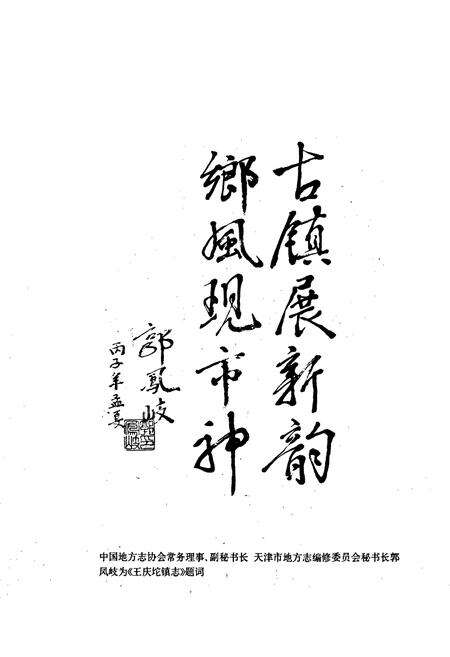 古镇展新韵
鄉風現市神
郭鳳岐
丙子年孟夏
中国地方志协会常务理事、副秘书长 天津市地方志编修委员会秘书长郭
凤岐为《王庆坨镇志》题词